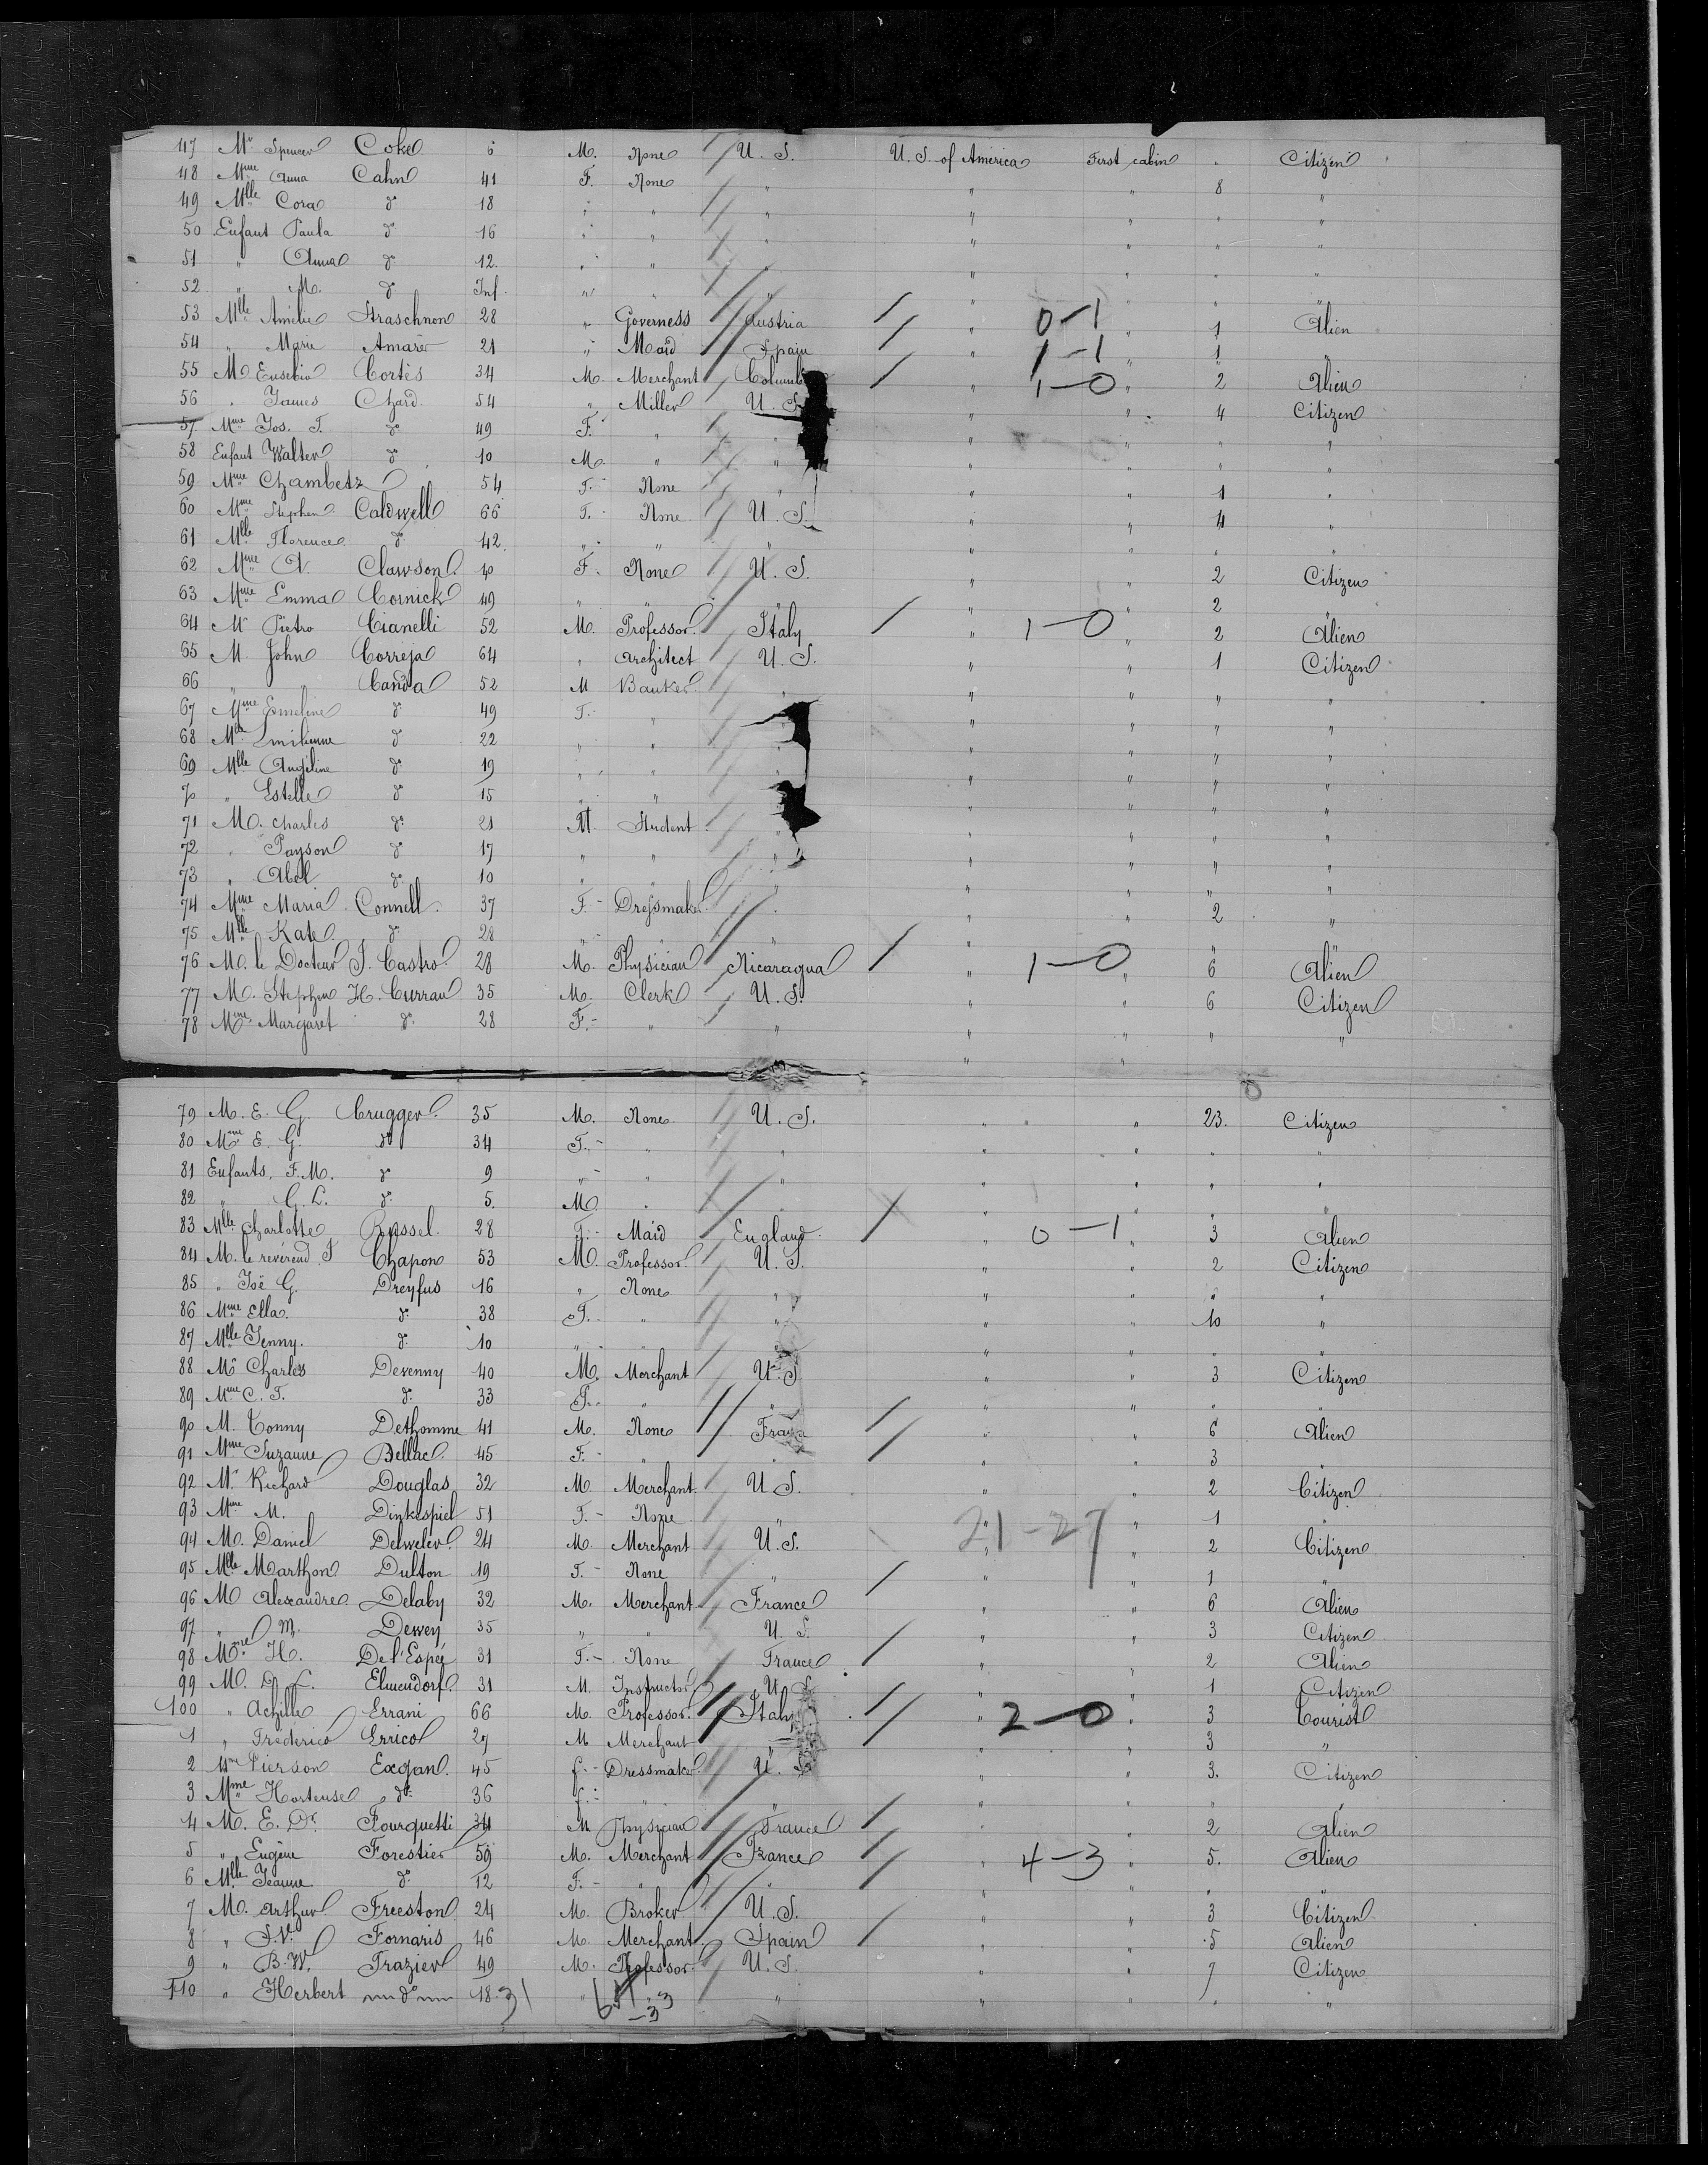 47 Mr Spencer Coke 6 M. None U. S. U. S. of America First cabin " Citizen
48 Mme Anna Cahn 41 F. None " " " 8 "
49 Mlle Cora do 18 " " " " " " "
50 Enfant Paula do 16 " " " " " " "
51 " Anna do 12. " " " " " " "
52 " M. do Inf. " " " " " " "
53 Mlle Amélie Straschnon 28 " Governess Austria " 0-1 " 1 Alien
54 " Marie Amarer 21 " Maid Spain " 1-1 " 1 "
55 M Eusebio Cortès 34 M. Merchant Columb " 1-0 " 2 Alien
56 " James Chard 54 " Miller U. S. " " 4 Citizen
57 Mme Jos. T. do 49 F. " " " " " "
58 Enfant Walter do 10 M. " " " " " "
59 Mme Chambetz 54 F. None " " " 1 "
60 Mme Stephen Caldwell 66 F. None U. S. " " 4 "
61 Mlle Florence do 42. " " " " " " "
62 Mme A. Clawson 40 F. None U. S. " " 2 Citizen
63 Mme Emma Cornick 49 " " " " " 2 "
64 Mr Pietro Cianelli 52 M. Professor Italy " 1-0 " 2 Alien
65 M. John Correja 64 " Architect U. S. " " 1 Citizen
66 " " Canda 52 M Banker " " " " "
67 Mme Emeline do 49 F. " " " " "
68 Mlle Emilienne do 22 " " " " " "
69 Mlle Angéline do 19 " " " " " "
70 " Estelle do 15 " " " " " "
71 M. Charles do 21 M. Student " " " " "
72 " Payson do 17 " " " " " " "
73 " Abel do 10 " " " " " " "
74 Mme Maria Connell 37 F. - Dressmaker " " " 2 "
75 Mlle Kate do 28 " " " " " " "
76 M. le Docteur J. Castro 28 M. Physician Nicaragua " 1-0 " 6 Alien
77 M. Stephen H. Curran 35 M. Clerk U. S. " " 6 Citizen
78 Mme Margaret do 28 F. - " " " " " "
79 M. E. G. Crugger 35 M. None U. S. " " 23. Citizen
80 Mme E. G. do 34 F. - " " " " " "
81 Enfants, F. M. do 9 " " " " " " "
82 " G. L. do 5. M " " " " " "
83 Mlle Charlotte Russel 28 F. - Maid England " 0-1 " 3 Alien
84 M. le révérend J Chapon 53 M. Professor U. S. " " 2 Citizen
85 " Joë G. Dreyfus 16 " None " " " " "
86 Mme Ella do 38 F. " " " " 10 "
87 Mlle Jenny. do 10 " " " " " " "
88 Mr Charles Devenny 40 M. Merchant U. S " " 3 Citizen
89 Mme C. T. do 33 F. - " " " " " "
90 M. Tonny Dethomme 41 M. None Fran " " 6 Alien
91 Mme Suzanne Bellac 45 F. - " " " " 3 "
92 Mr Richard Douglas 32 M. Merchant U. S. " " 2 Citizen
93 Mme M. Dinkespiel 51 F. - None " " " 1 "
94 M. Daniel Delweler 24 M. Merchant U. S. 21-27 " " 2 Citizen
95 Mlle Marthon Dulton 19 F. - None " " " 1 "
96 M Alexandre Delaby 32 M. Merchant France " " 6 Alien
97 " M. Dewey 35 " " U. S. " " 3 Citizen
98 Mme H. De l'Espée 31 F. - None France " " 2 Alien
99 M. D. L. Elmendorf 31 M. Instructor U. S " " 1 Citizen
100 " Achille Errani 66 M. Professor Italy " 2-0 " 3 Tourist
1 " Fréderico Errico 27 M Merchant " " " 3 "
2 Mme Pierson Exgan 45 f. - Dressmaker U. S " " 3. Citizen
3 Mme Hortense do 36 f. - " " " " " "
4 M. E. Dr. Fourquetti 34 M Physician France " " 2 Alien
5 " Eugène Forestier 59 M. Merchant France " 4-3 " 5. Alien
6 Mlle Jeanne do 12 F. - " " " " " "
7 M. Arthur Freeston 24 M. Broker U. S. " " 3 Citizen
8 " S. V. Fornaris 46 M. Merchant Spain " " 5 Alien
9 " B. W. Frazier 49 M. Professor U. S. " " 7 Citizen
110 " Herbert do 18 31 " " " " " " "